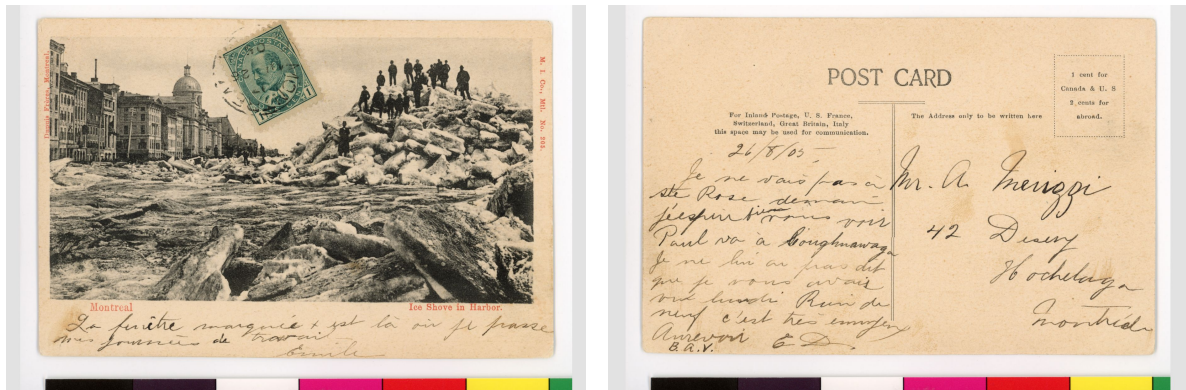 Montreal
Ice Shove in Harbor.
M. I. Co., Mtl. No. 293.
La fenêtre marquée x est là où je passe
mes journées de travail
Emile
POST CARD
1 cent for
Canada & U. S
2 cents for
abroad.
For Inland Postage, U. S. France,
Switzerland, Great Britain, Italy
this space may be used for communication.
The Address only to be written here
26/8/05
Je ne vais pas à
ste Rose demain
j'éspère vous voir
Paul va à Coughnawaga
Je ne lui ai pas dit
que je vous avais
vue lundi Rien de
neuf c'est très ennuyeux
Aurevoir E D.
B. A. V.
Mr. A. Merizzi
42 Desery
Hochelaga
Montréal